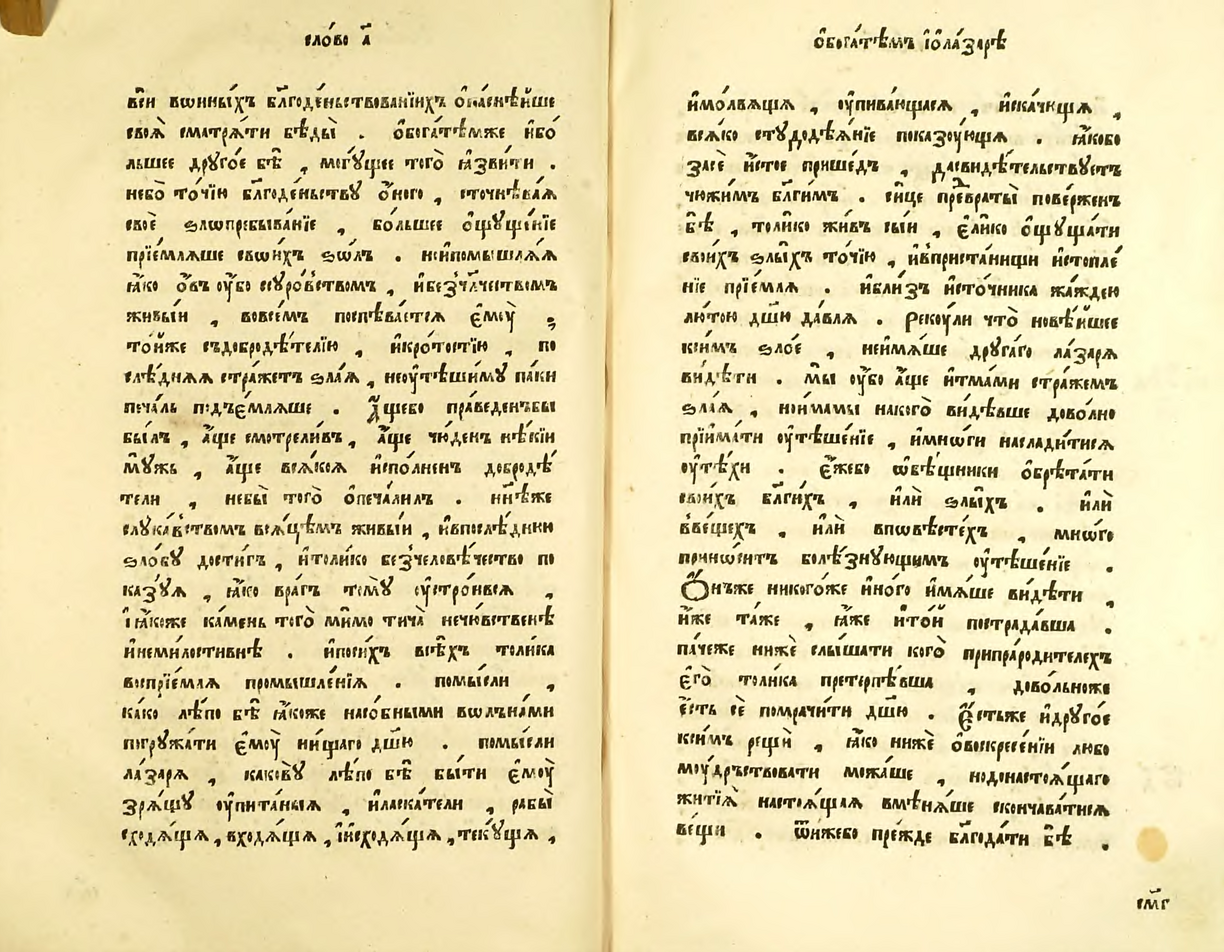 сло́во а҃
вси вѡнны́хъ бл҃годе́ньствованїихъ ѻпа́снѣйше
своѧ̀ сматрѧ́ти бѣды̀ . ѻбога́тѣмже и҆бо
льшее друго́е бѣ̀ , могу́щее того̀ ꙗ҆зви́ти .
небо̀ то́чїю бл҃годе́ньству о҆́ного , сточнѣ́ваѧ
своѐ ѕлѡпребыва́нїе , бо́льшее ѻщуще́нїе
прїе́млѧше свои́хъ ѕѡ́лъ . ноипомышлѧ́ѧ
ꙗ҆́ко ѻ҆́въ ᲂу҆́бо ссуро́вствомъ , и҆безчл҃чествомъ
живы́и , вовсе́мъ поспѣва́етсѧ є҆мꙋ̀ ;
то́йже съдобродѣ́телїю , и҆кро́тостїю , по
слѣ́днѧѧ стра́жетъ ѕла́ѧ , неᲂу҆тѣ́шиму па́ки
печа́ль подъе́млѧше . А҆́щебо пра́веденъбы
бы́лъ , а҆́ще смотре́ливъ , а҆́ще чю́денъ нѣ́кїи
мꙋ́жь , а҆́ще всѧ́коѧ и҆спо́лненъ добродѣ́
тели , небы̀ того̀ ѻпеча́лилъ . нн҃ѣже
слука́вствомъ всѧ́цѣмъ живы́и , и҆впослѣ́днюю
ѕло́бꙋ дости́гъ , и҆толи́ко безчеловѣ́чество по
ка́зꙋѧ , ꙗ҆́ко вра́гъ томꙋ̀ ᲂу҆стро́ивсѧ ,
і҆ ꙗ҆́коже ка́мень того̀ ми́мо тича̀ нечю́вственѣ
и҆неми́лостивнѣ . и҆поси́хъ всѣ́хъ толи́ка
воспрїе́млѧ промышле́нїѧ . помы́сли ,
ка́ко лѣ́по бѣ̀ ꙗ҆́коже нассо́бными вѡлъна́ми
погрꙋжа́ти є҆мꙋ̀ ни́щаго дш҃ю . помы́сли
ла́зарѧ , какову̀ лѣ́по бѣ̀ бы́ти є҆мꙋ̀
зрѧ́щꙋ ᲂу҆пита́ныѧ , и҆ласка́тели , рабы̀
сходѧ́щѧ , входѧ́щѧ , і҆исходѧ́щѧ , текꙋ́щѧ ,
ѻбога́тѣмъ і҆ола́зарѣ
и҆молвѧ́щѧ , ᲂу҆пива́ющаѧсѧ , и҆ска́чющѧ ,
всѧ́ко стꙋдодѣѧ́нїе показᲂу́ющѧ . ꙗ҆́кобо
засѐ и҆́стое прише́дъ , дасвидѣ́тельствуетъ
чюжи́мъ бл҃ги́мъ . си́це преврати́ пове́рженъ
бѣ̀ , толи́ко жи́въ сы́и , є҆ли́ко ѻщуща́ти
свои́хъ ѕлы́хъ то́чїю , и҆впри́станищи и҆стопле́
нїе прїе́млѧ . и҆бли́зъ и҆сто́чника жа́ждею
лю́тою дш҃ю да́влѧ . Рекᲂу́ли что̀ новѣ́йшее
ксимъ ѕло́е , неимѧ́ше друга́го ла́зарѧ
ви́дѣти . мы̀ ᲂу҆́бо а҆́ще и҆тма́ми стра́жемъ
ѕла́ѧ , нои́мамы накого̀ ви́дѣвше дово́лно
прїима́ти ᲂу҆тѣше́нїе , и҆мнѡ́ги наслади́тисѧ
ᲂу҆тѣ́хи . є҆́жебо ѡбѣ́щники ѻбрѣта́ти
свои́хъ бл҃ги́хъ , и҆лѝ ѕлы́хъ . и҆лѝ
вве́щехъ , и҆лѝ впѡ́вѣстехъ , мнѡ́го
приноси́тъ болѣ́знующимъ ᲂу҆тѣше́нїе .
Ѻ҆́нъже никого́же и҆но́го и҆мѧ́ше ви́дѣти ,
и҆́же та́же , ꙗ҆́же и҆то́й пострада́вша .
па́чеже нижѐ слы́шати кого̀ припра́родителехъ
є҆го̀ толи́ка претерпѣ́вша , дово́льноже
є҆́сть сѐ помрачи́ти дш҃ю . Є҆́стьже и҆друго́е
ксимъ рещѝ , ꙗ҆́ко нижѐ ѻвоскресе́нїи лю́бо
мᲂу́дрьствовати можа́ше , нодонастоѧ́щаго
житїѧ̀ настоѧ́щаѧ вмѣнѧ́ше сконча́ватисѧ
ве́щи . ѿни́жебо пре́жде бл҃года́ти бѣ̀ .
см҃г